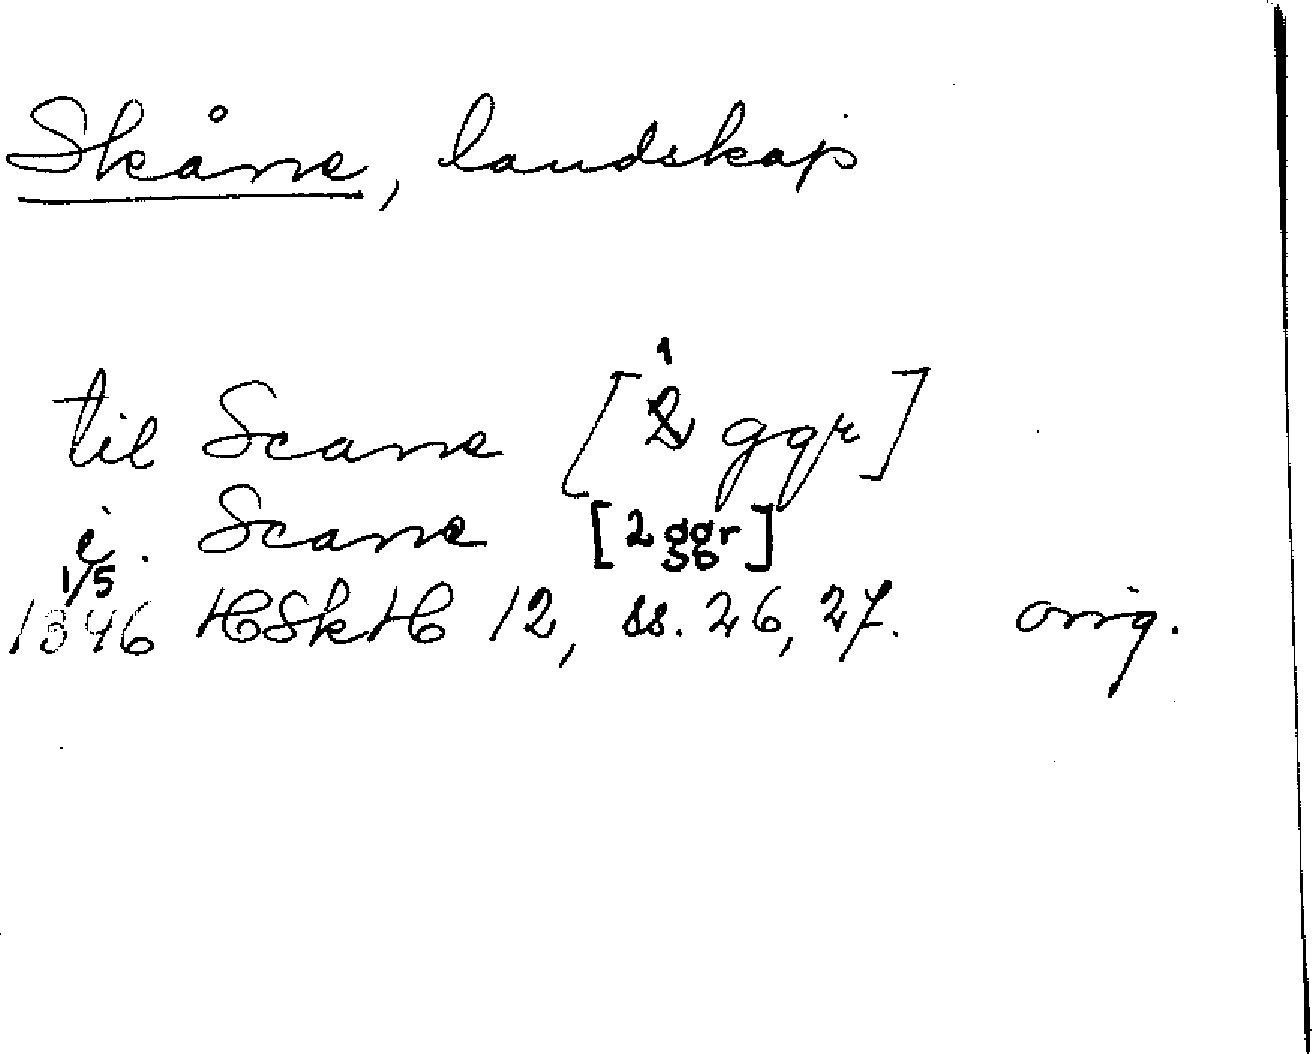 Skåne, landskap
til Scane [1 ggr]
i. Scane [2 ggr]
1/5
1346 HSkH 12, ss. 26, 27. orig.